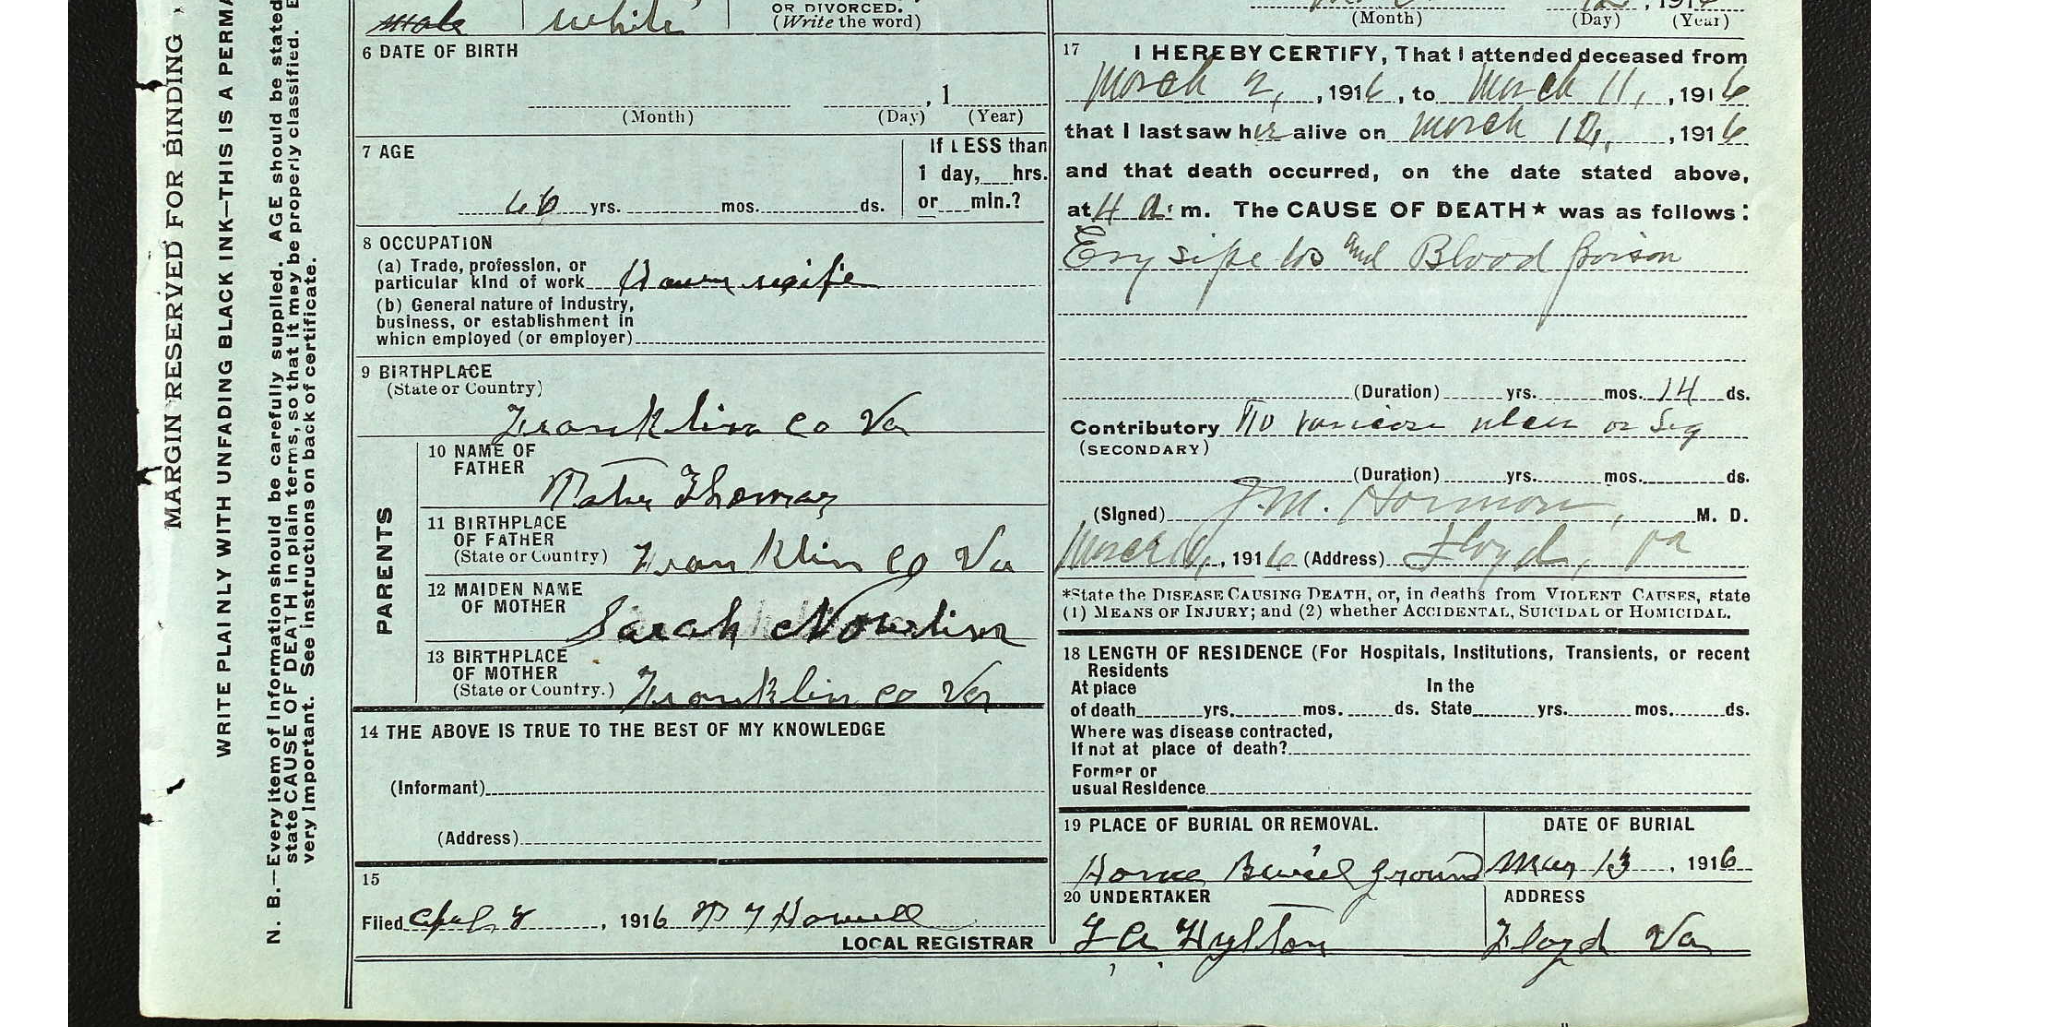 MARGIN RESERVED FOR BINDING
WRITE PLAINLY WITH UNFADING BLACK INK—THIS IS A PERMA
N. B.—Every item of information should be carefully supplied. AGE should be stated
state CAUSE OF DEATH in plain terms, so that it may be properly classified. E
very important. See instructions on back of certificate.
male white
OR DIVORCED.
(Write the word)
6 DATE OF BIRTH
, 1
(Month) (Day) (Year)
7 AGE
If LESS than
1 day, hrs.
or min.?
yrs. mos. ds.
8 OCCUPATION
(a) Trade, profession, or
particular kind of work House wife
(b) General nature of Industry,
business, or establishment in
which employed (or employer)
9 BIRTHPLACE
(State or Country)
Franklin Co Va
PARENTS
10 NAME OF
FATHER
Thomas
11 BIRTHPLACE
OF FATHER
(State or Country) Franklin Co Va
12 MAIDEN NAME
OF MOTHER
Sarah Nowlin
13 BIRTHPLACE
OF MOTHER
(State or Country.) Franklin Co Va
14 THE ABOVE IS TRUE TO THE BEST OF MY KNOWLEDGE
(Informant)
(Address)
15
Filed , 1916 Howell
LOCAL REGISTRAR
, 191
(Month) (Day) (Year)
17 I HEREBY CERTIFY, That I attended deceased from
March 2, , 1916, to March 11, , 1916
that I last saw her alive on March 10, , 1916
and that death occurred, on the date stated above,
at 4 a. m. The CAUSE OF DEATH* was as follows:
Erysipelas and Blood poison
(Duration) yrs. mos. 14 ds.
Contributory varicose ulcer
(SECONDARY)
(Duration) yrs. mos. ds.
(Signed) J. M. Harman, M. D.
March , 1916 (Address) Floyd, Va
*State the DISEASE CAUSING DEATH, or, in deaths from VIOLENT CAUSES, state
(1) MEANS OF INJURY; and (2) whether ACCIDENTAL, SUICIDAL or HOMICIDAL.
18 LENGTH OF RESIDENCE (For Hospitals, Institutions, Transients, or recent
Residents
At place In the
of death yrs. mos. ds. State yrs. mos. ds.
Where was disease contracted,
If not at place of death?
Former or
usual Residence
19 PLACE OF BURIAL OR REMOVAL. DATE OF BURIAL
Home Buriel ground Mar 13 , 1916
20 UNDERTAKER ADDRESS
Hylton Floyd Va